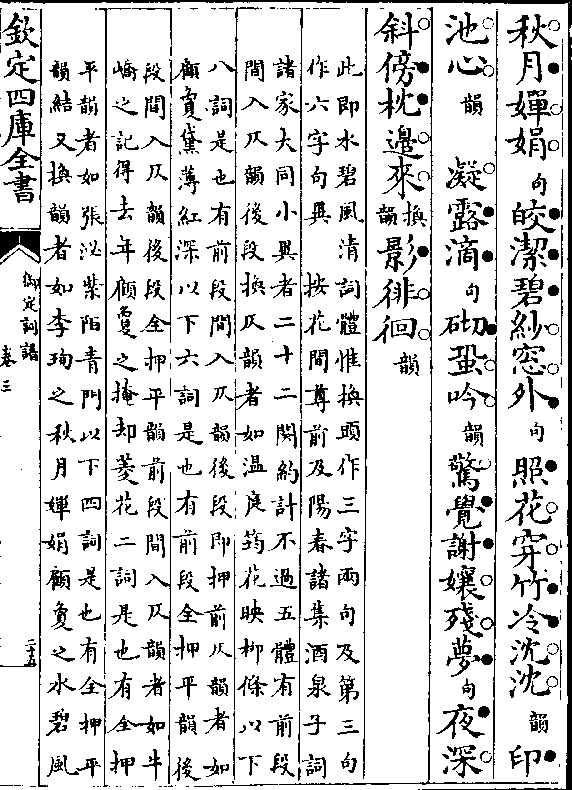 秋月嬋娟句皎潔碧紗窓外句照花穿竹冷沈沈韻印
池心韻 凝露滴句砌蛩吟韻驚覺謝孃殘夢句夜深
斜傍枕邊來換韻影徘徊韻
此即水碧風清詞體惟換頭作三字兩句及第三句
作六字句異 按花間尊前及陽春諸集酒泉子詞
諸家大同小異者二十二闋約計不過五體有前段
間入仄韻後段換仄韻者如温庭筠花映柳條以下
八詞是也有前段間入仄韻後段即押前仄韻者如
顧敻黛薄紅深以下六詞是也有前段全押平韻後
段間入仄韻後段全押平韻前段間入仄韻者如牛
嶠之記得去年顧敻之掩却菱花二詞是也有全押
平韻者如張泌紫陌青門以下四詞是也有全押平
韻結又換韻者如李珣之秋月嬋娟顧敻之水碧風
欽定四庫全書
御定詞譜
卷三
二十五